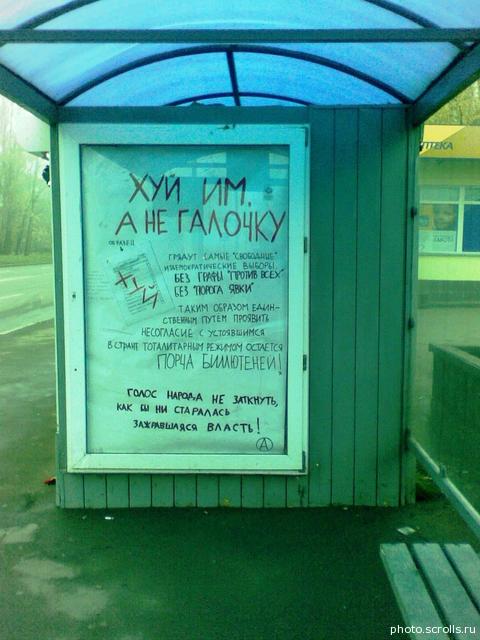 ХУЙ ИМ,
А НЕ ГАЛОЧКУ
ОБРАЗЕЦ
ХУЙ
ГРЯДУТ САМЫЕ "СВОБОДНЫЕ"
И ДЕМОКРАТИЧЕСКИЕ ВЫБОРЫ.
БЕЗ ГРАФЫ "ПРОТИВ ВСЕХ"
БЕЗ "ПОРОГА ЯВКИ"
ТАКИМ ОБРАЗОМ ЕДИН-
СТВЕННЫМ ПУТЕМ ПРОЯВИТЬ
НЕСОГЛАСИЕ С УСТОЯВШИМСЯ
В СТРАНЕ ТОТАЛИТАРНЫМ РЕЖИМОМ ОСТАЕТСЯ
ПОРЧА БЮЛЛЮТЕНЕЙ!
ГОЛОС НАРОДА НЕ ЗАТКНУТЬ,
КАК БЫ НИ СТАРАЛАСЬ
ЗАЖРАВШАЯСЯ ВЛАСТЬ!
А
ПТЕКА
photo.scrolls.ru